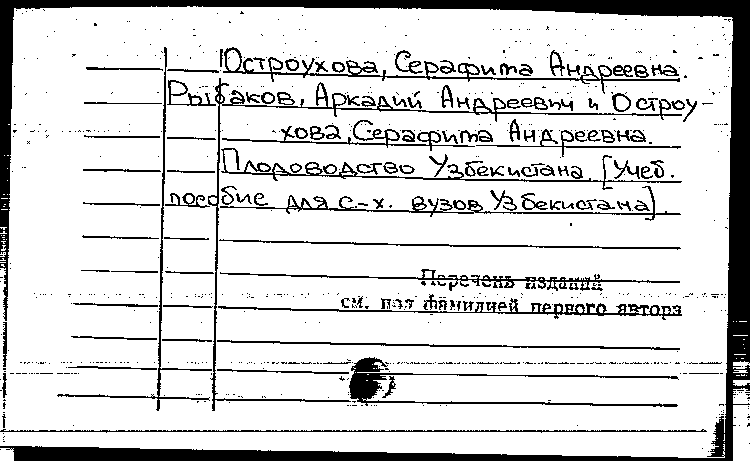 Остроухова, Серафима Андреевна.
Рыбаков, Аркадий Андреевич и Остроу-
хова, Серафима Андреевна.
Плодоводство Узбекистана. [Учеб.
пособие для с-х. вузов Узбекистана].
Перечень изданий
см. под фамилией первого автора